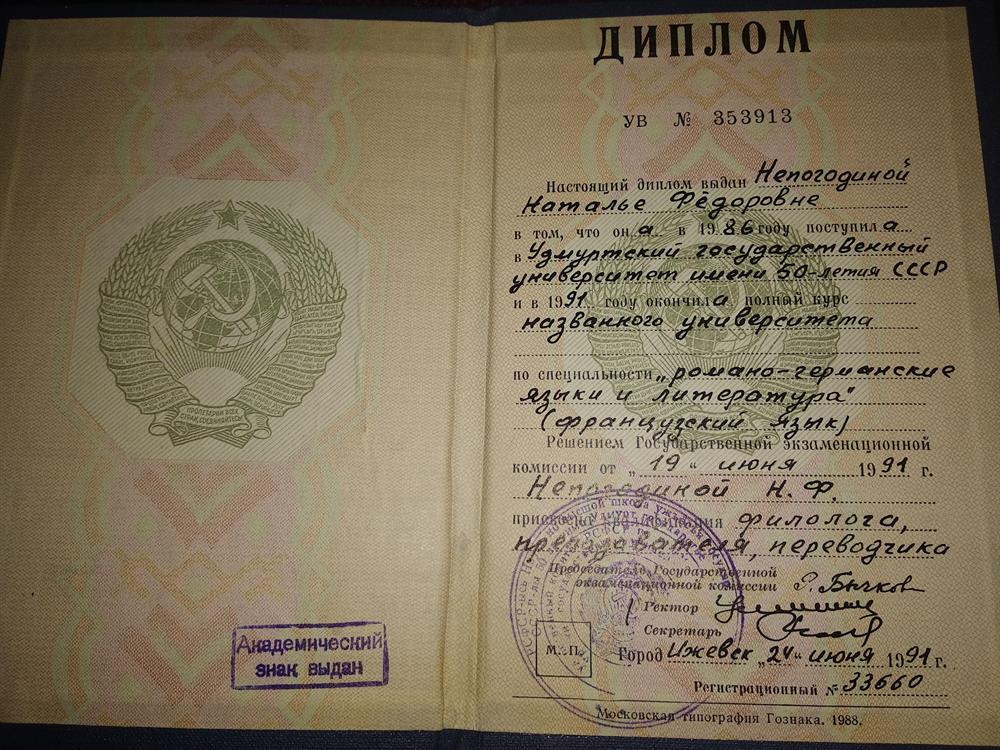 ПРОЛЕТАРИИ ВСЕХ
СТРАН, СОЕДИНЯЙТЕСЬ!
Академический
знак выдан
ДИПЛОМ
УВ № 353913
Настоящий диплом выдан Непогодиной
Наталье Фёдоровне
в том, что она в 1986 году поступила
в Удмуртский государственный
университет имени 50-летия СССР
и в 1991 году окончила полный курс
названного университета
по специальности „романо-германские
языки и литература"
(французский язык)
Решением Государственной экзаменационной
комиссии от „19" июня 1991 г.
Непогодиной Н. Ф.
присвоена квалификация филолога,
преподавателя, переводчика
Председатель Государственной
экзаменационной комиссии Р. Бычков
Ректор
Секретарь
М. П.
Город Ижевск „24" июня 1991 г.
Регистрационный № 33660
Московская типография Гознака. 1988.